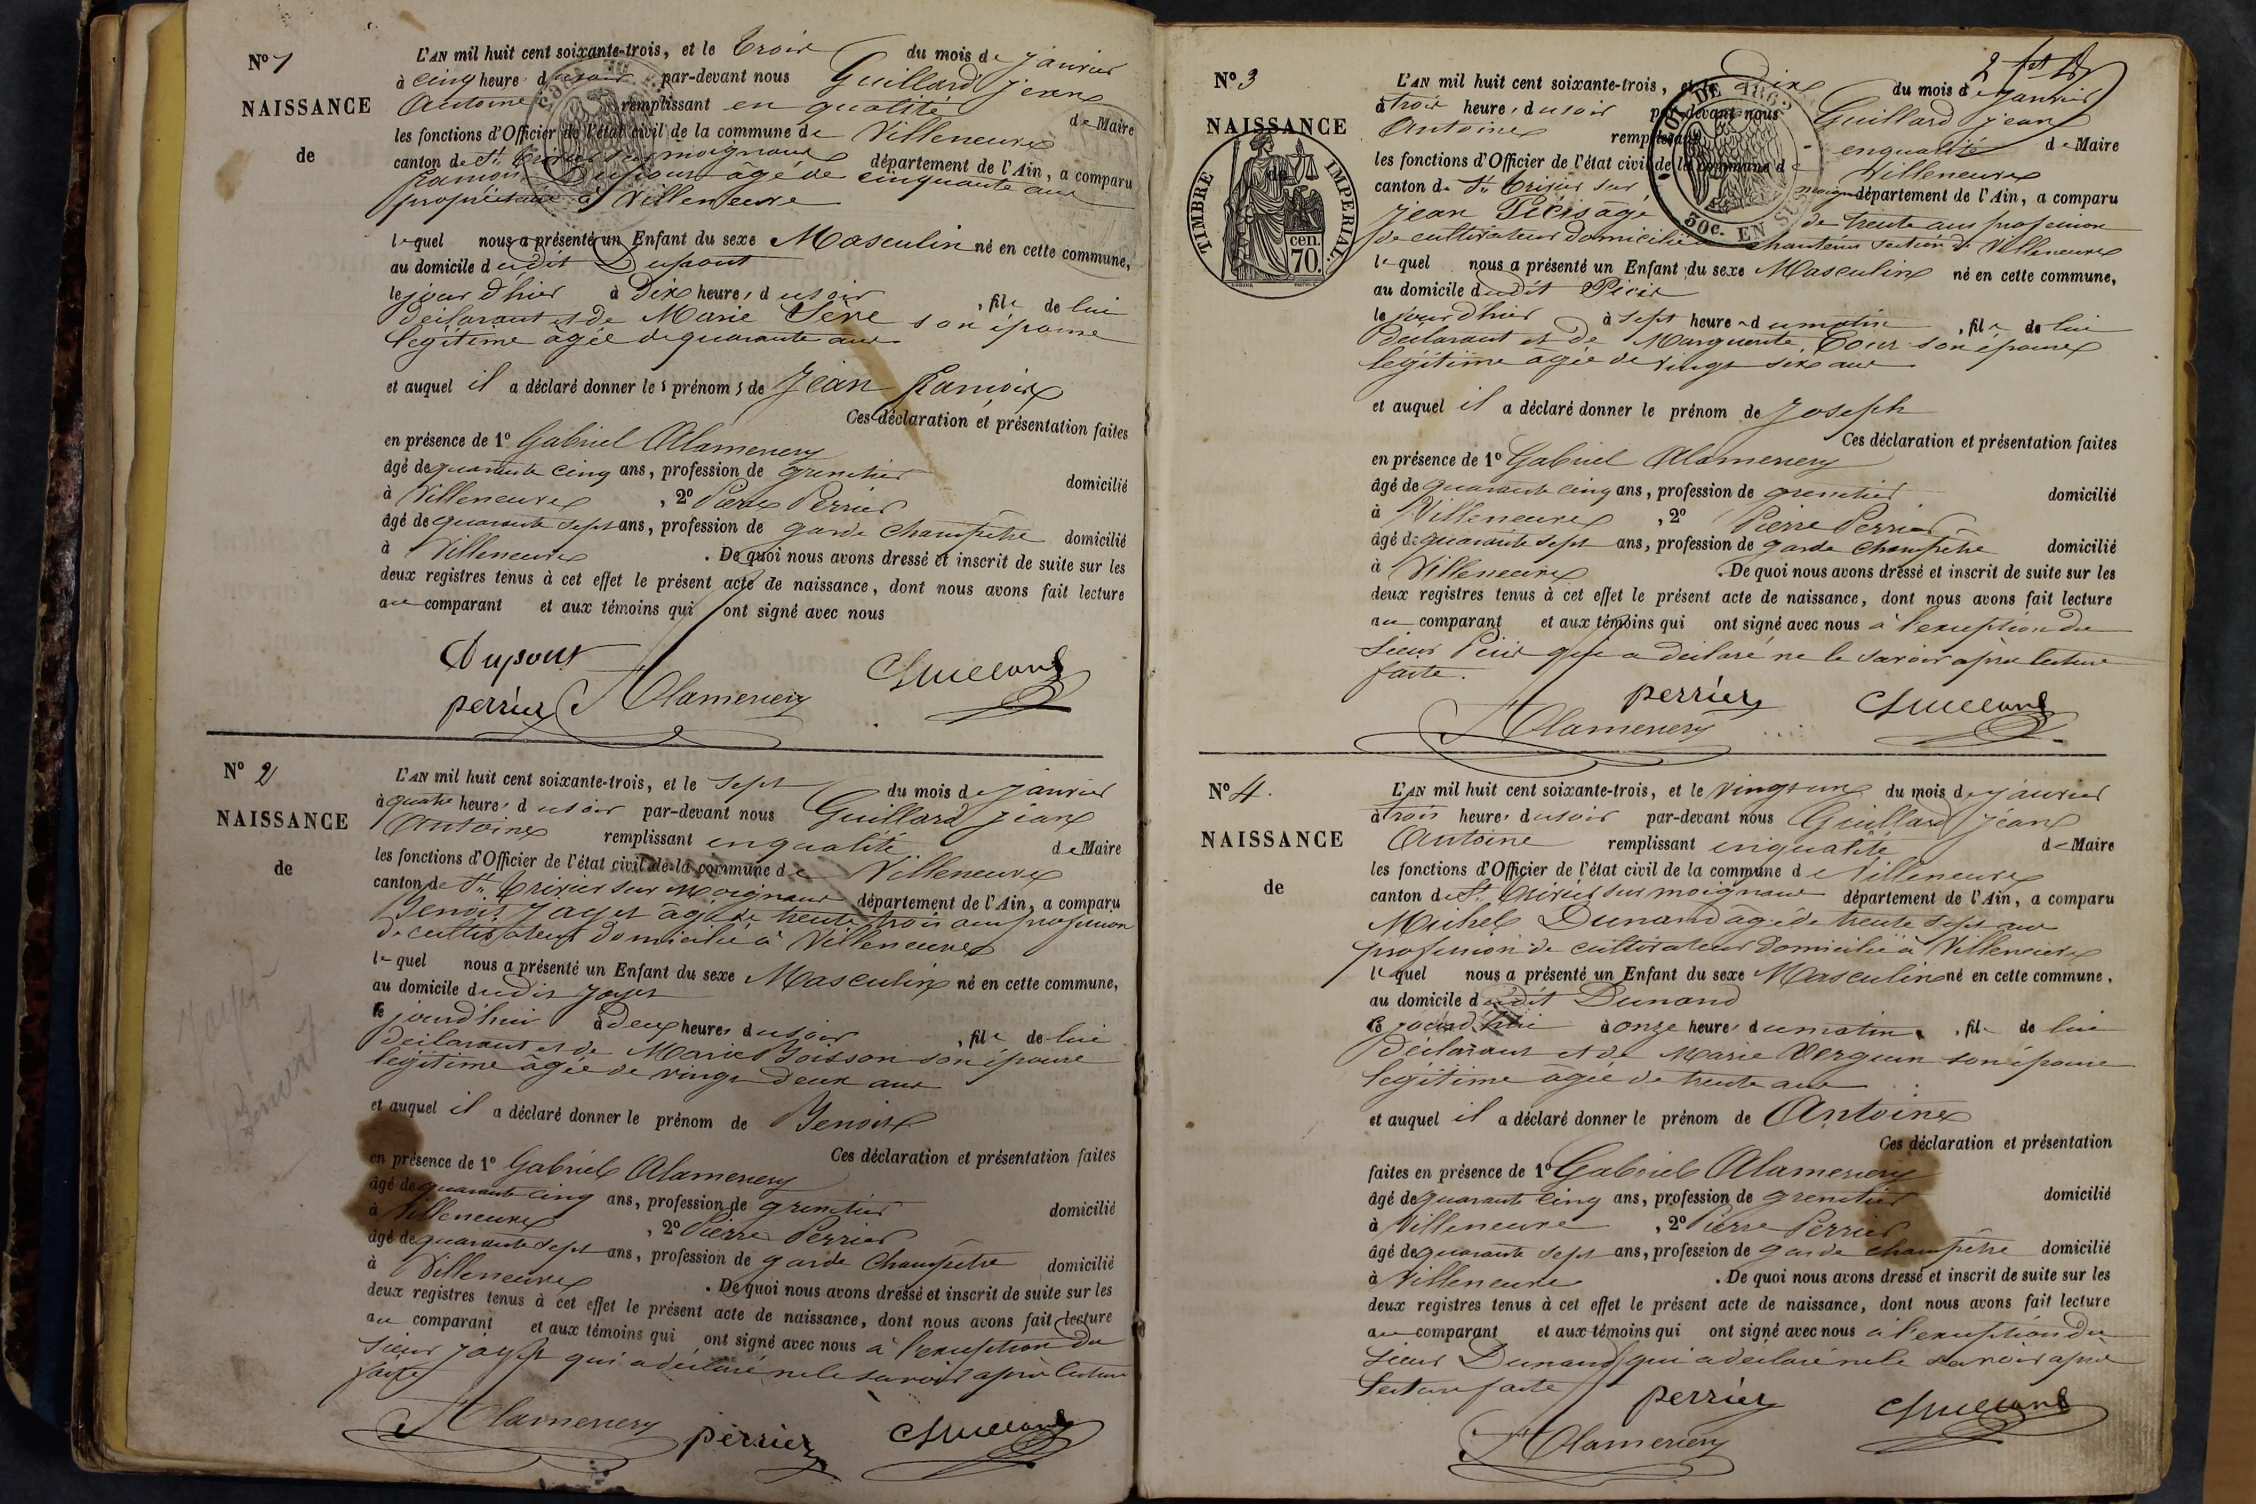 N° 1
NAISSANCE
de
L'AN mil huit cent soixante-trois, et le trois du mois de janvier
à cinq heures du soir par-devant nous Guillard jean
Antoine remplissant en qualité de Maire
les fonctions d'Officier de l'état civil de la commune de Villeneuve
canton de St Trivier sur moignans département de l'Ain, a comparu
francois Dupont âgé de cinquante ans
propriétaire à Villeneuve
lequel nous a présenté un Enfant du sexe Masculin né en cette commune,
au domicile dudit Dupont
le jour d'hier à Dix heures du soir, fils de lui
déclarant et de Marie Sève son épouse
légitime âgée de quarante ans
et auquel il a déclaré donner les prénoms de Jean francois
Ces déclaration et présentation faites
en présence de 1° Gabriel Alamercery
âgé de quarante cinq ans, profession de grenetier domicilié
à Villeneuve, 2° Pierre Perrier
âgé de quarante sept ans, profession de garde champêtre domicilié
à Villeneuve. De quoi nous avons dressé et inscrit de suite sur les
deux registres tenus à cet effet le présent acte de naissance, dont nous avons fait lecture
au comparant et aux témoins qui ont signé avec nous
Dupont
perrier Alamercery Guillard
N° 2
NAISSANCE
de
L'AN mil huit cent soixante-trois, et le sept du mois de janvier
à quatre heures du soir par-devant nous Guillard jean
Antoine remplissant en qualité de Maire
les fonctions d'Officier de l'état civil de la commune de Villeneuve
canton de St Trivier sur Moignans département de l'Ain, a comparu
Benoit Jayet âgé de trente trois ans profession
de cultivateur domicilié à Villeneuve
lequel nous a présenté un Enfant du sexe Masculin né en cette commune,
au domicile dudit Jayet
le jourd'hui à deux heures du soir, fils de lui
déclarant et de Marie Boisson son épouse
légitime âgée de vingt deux ans
et auquel il a déclaré donner le prénom de Benoit
Ces déclaration et présentation faites
en présence de 1° Gabriel Alamercery
âgé de quarante cinq ans, profession de grenetier domicilié
à Villeneuve, 2° Pierre Perrier
âgé de quarante sept ans, profession de garde champêtre domicilié
à Villeneuve. De quoi nous avons dressé et inscrit de suite sur les
deux registres tenus à cet effet le présent acte de naissance, dont nous avons fait lecture
au comparant et aux témoins qui ont signé avec nous à l'exception du
sieur Jayet qui a déclaré ne le savoir après lecture
faite
Alamercery perrier Guillard
Jayet
Benoit
2
N° 3
NAISSANCE
de
TIMBRE IMPÉRIAL
cen. 70.
30c. EN SUS
L'AN mil huit cent soixante-trois, et le Dix du mois de janvier
à trois heures du soir par-devant nous Guillard jean
Antoine remplissant en qualité de Maire
les fonctions d'Officier de l'état civil de la commune de Villeneuve
canton de St Trivier sur moignans département de l'Ain, a comparu
jean Péist âgé de trente ans profession
de cultivateur domicilié à chanteins section de Villeneuve
lequel nous a présenté un Enfant du sexe Masculin né en cette commune,
au domicile dudit
le jour d'hier à sept heures du matin, fils de lui
déclarant et de Marguerite Tour son épouse
légitime âgée de vingt six ans
et auquel il a déclaré donner le prénom de Joseph
Ces déclaration et présentation faites
en présence de 1° Gabriel Alamercery
âgé de quarante cinq ans, profession de grenetier domicilié
à Villeneuve, 2° Pierre Perrier
âgé de quarante sept ans, profession de garde champêtre domicilié
à Villeneuve. De quoi nous avons dressé et inscrit de suite sur les
deux registres tenus à cet effet le présent acte de naissance, dont nous avons fait lecture
au comparant et aux témoins qui ont signé avec nous à l'exception du
sieur qui a déclaré ne le savoir après lecture
faite.
perrier Guillard
Alamercery
N° 4.
NAISSANCE
de
L'AN mil huit cent soixante-trois, et le vingt un du mois de janvier
à trois heures du soir par-devant nous Guillard jean
Antoine remplissant en qualité de Maire
les fonctions d'Officier de l'état civil de la commune de Villeneuve
canton de St Trivier sur moignans département de l'Ain, a comparu
Michel Dunand âgé de trente sept ans
profession de cultivateur domicilié à Villeneuve
lequel nous a présenté un Enfant du sexe Masculin né en cette commune,
au domicile dudit Dunand
le jourd'hui à onze heures du matin, fils de lui
déclarant et de Marie Verguin son épouse
légitime âgée de trente ans
et auquel il a déclaré donner le prénom de Antoine
Ces déclaration et présentation
faites en présence de 1° Gabriel Alamercery
âgé de quarante cinq ans, profession de grenetier domicilié
à Villeneuve, 2° Pierre Perrier
âgé de quarante sept ans, profession de garde champêtre domicilié
à Villeneuve. De quoi nous avons dressé et inscrit de suite sur les
deux registres tenus à cet effet le présent acte de naissance, dont nous avons fait lecture
au comparant et aux témoins qui ont signé avec nous à l'exception du
sieur Dunand qui a déclaré ne le savoir après
lecture faite
perrier Guillard
Alamercery